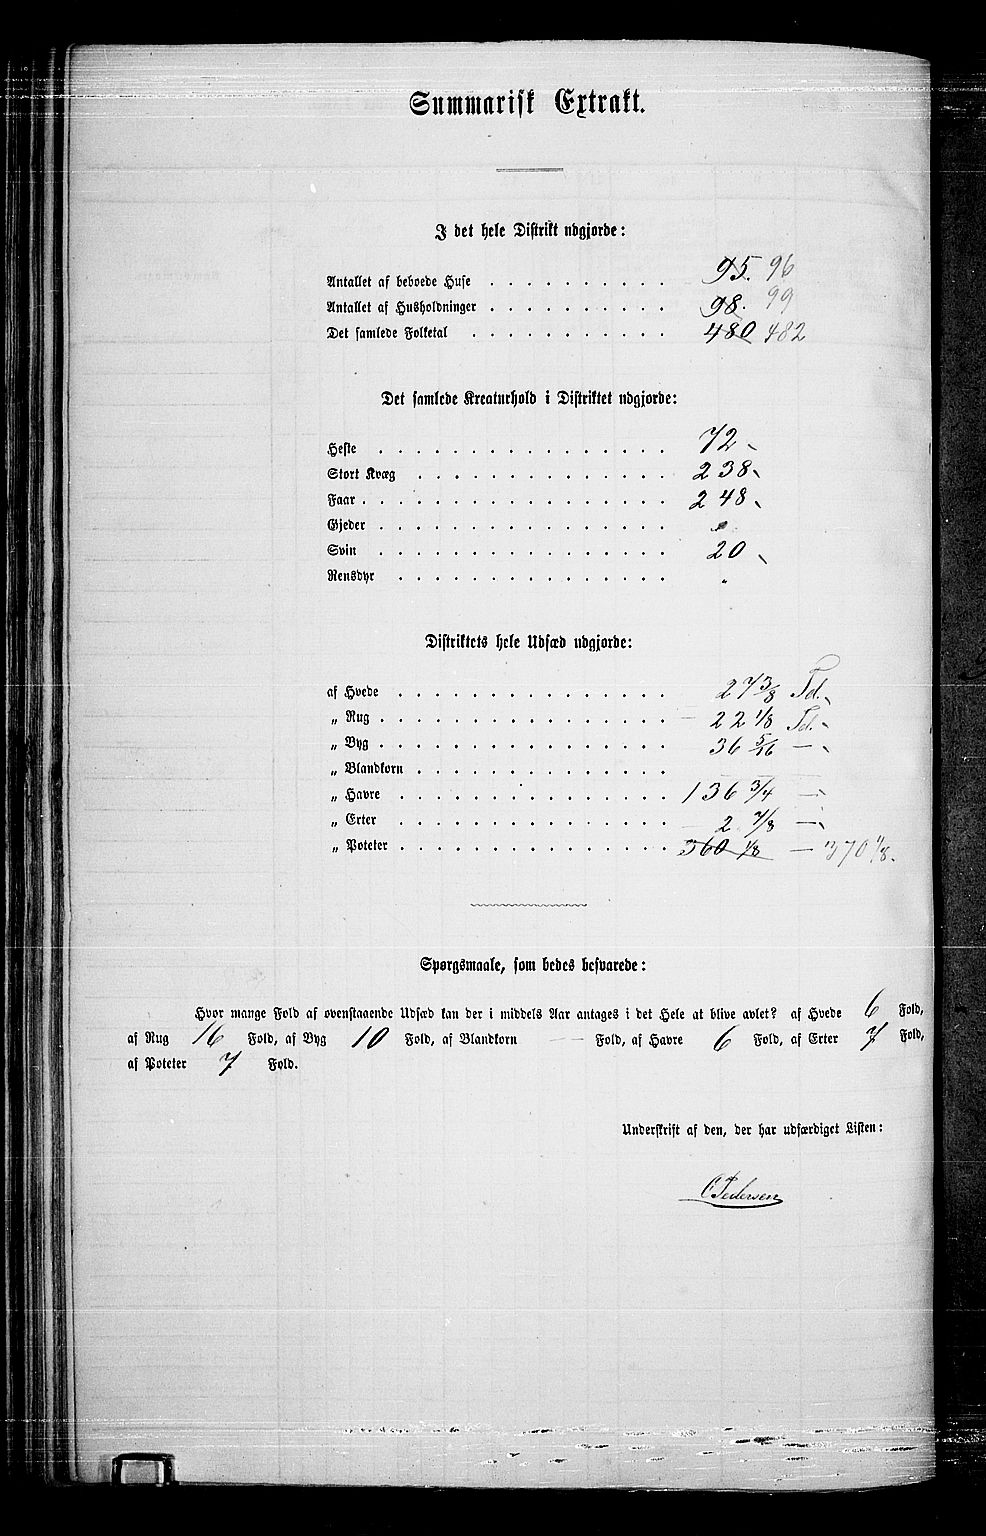 Summarisk Extrakt.
I det hele Distrikt udgjorde:
Antallet af beboede Huse . . . . . . . . . . 95. 96
Antallet af Husholdninger . . . . . . . . . . 98. 99
Det samlede Folketal . . . . . . . . . . . 480 482
Det samlede Kreaturhold i Distriktet udgjorde:
Heste . . . . . . . . . . . . . . . . 72
Stort Kvæg . . . . . . . . . . . . . . 238
Faar . . . . . . . . . . . . . . . . . 248
Gjeder . . . . . . . . . . . . . . . . "
Svin . . . . . . . . . . . . . . . . 20
Rensdyr . . . . . . . . . . . . . . . "
Distriktets hele Udsæd udgjorde:
af Hvede . . . . . . . . . . . . . . . 27 3/8 Td.
„ Rug . . . . . . . . . . . . . . . . 22 1/8 Td.
„ Byg . . . . . . . . . . . . . . . . 36 5/16 —
„ Blandkorn . . . . . . . . . . . . . .
„ Havre . . . . . . . . . . . . . . . 136 3/4 —
„ Erter . . . . . . . . . . . . . . . 2 7/8 —
„ Poteter . . . . . . . . . . . . . . . 360 1/8 — 370 1/8.
Spørgsmaale, som bedes besvarede:
Hvor mange Fold af ovenstaaende Udsæd kan der i middels Aar antages i det Hele at blive avlet? af Hvede 6 Fold,
af Rug 16 Fold, af Byg 10 Fold, af Blandkorn — Fold, af Havre 6 Fold, af Erter 7 Fold,
af Poteter 7 Fold.
Underskrift af den, der har udfærdiget Listen:
C Pedersen